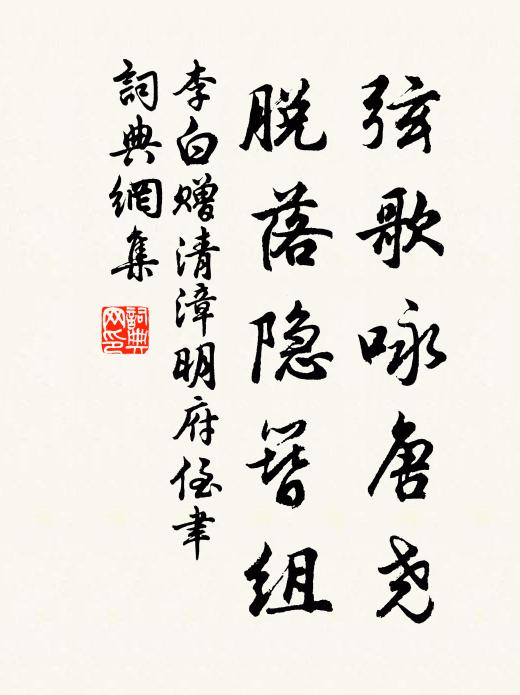 弦歌咏唐尧
脱落隐簪组
李白赠清漳明府侄聿
詞典網集
詞典网印